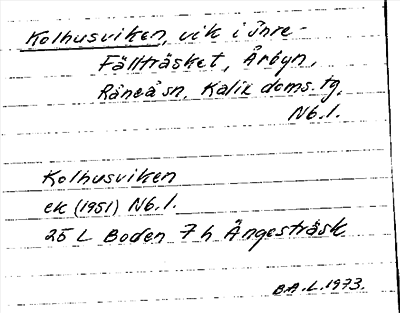 Kolhusviken, vik i Inre-
Fällträsket, Årbyn,
Råneå sn, Kalix doms. tg,
Nb.l.
Kolhusviken
ek (1951) Nb.l.
25 L Boden 7 h Ängesträsk
B.A.L. 1973.